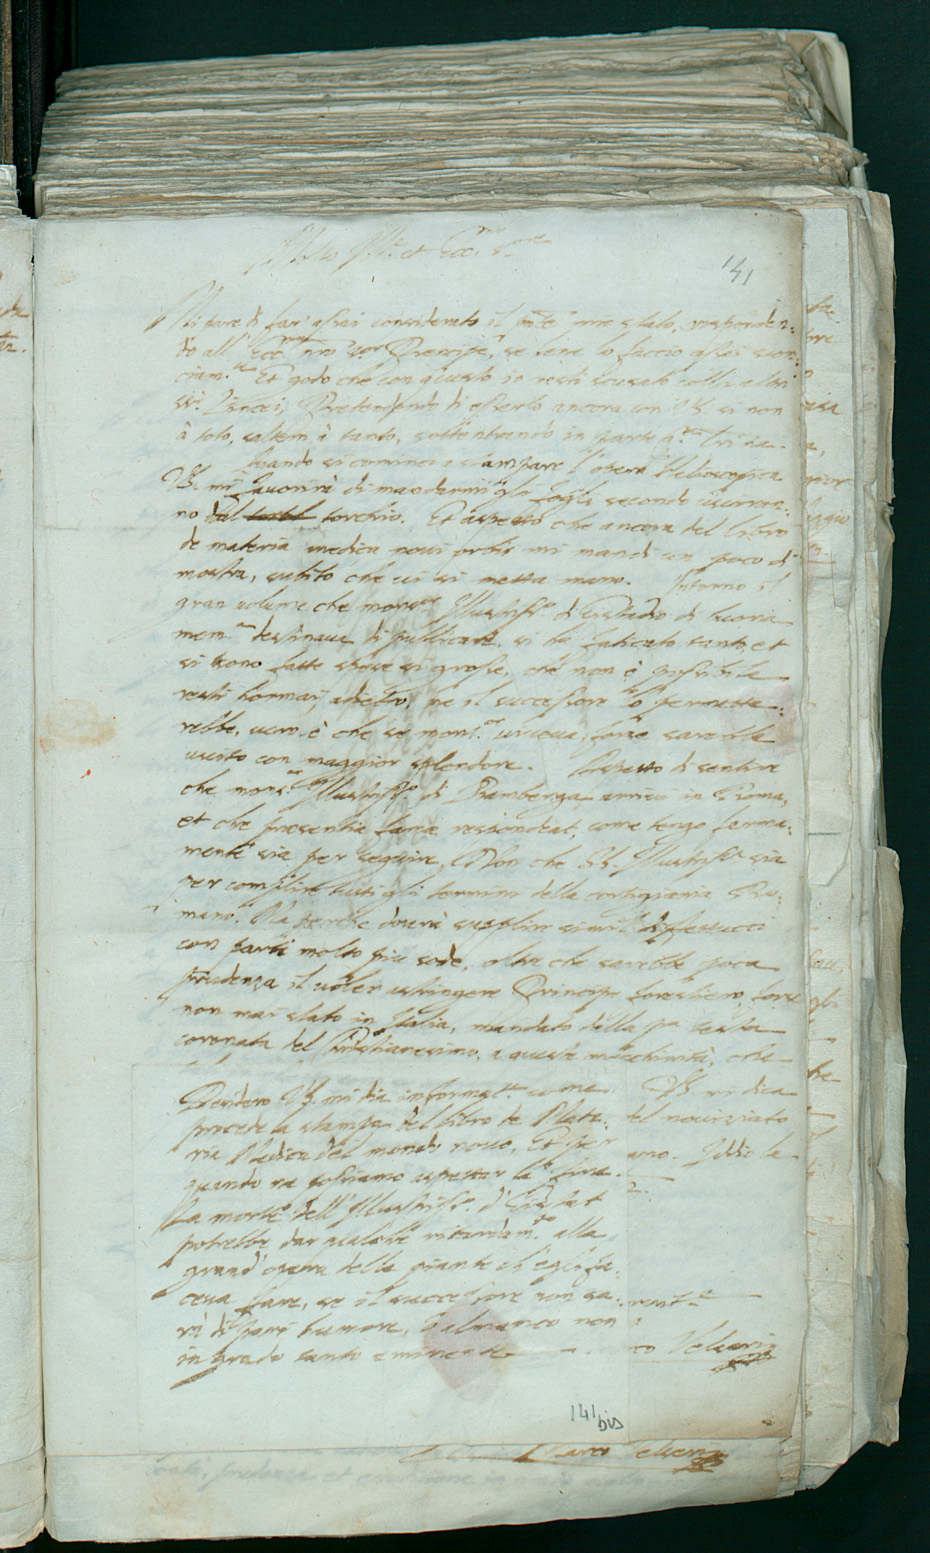 Molto Ill.re et Ecc.te S.ore
141
Mi pare di far assai considerato il pnte pme stato, responden:
do all' Ecc.mo nro Sor Prencipe, se bene lo faccio assai scon:
ciam.te Et godo che con questo io resti scusato colli altri
SSri Lyncei, Pretendendo di esserlo ancora con VS. si non
à toto, saltem à tanto,
Quando si cominci a stampare l'opera Helioscopica
VS. mi favorirà di mandarmi gli fogli secondo usciran:
no dal torchio. Et aspetto che ancora del libro
de materia medica novi orbis mi mandi un poco di
mostra, subito che vi si metta mano. Intorno il
gran volume che mons.or Illustriss.o di Eystadio di buona
mem.a destinava di publicare, si ha faticato tanto et
si sono fatte spese si grosse, che non è possibile
resti hormai adietro, ne il successore lo permette:
rebbe, vero è che se mons.or viveva, forse sarebbe
uscito con maggior splendore. Aspetto di sentire
che mons.or Illustriss.o di Bamberga arrivi in Roma,
et che presentia famæ respondeat, come tengo ferma:
mente sia per seguire, Non che SS. Illustriss.a sia
per complire tutti gli termini della cortigiania Ro:
mana. Ma perche dovrà supplire simili diffettucci
con parti molto più sode, oltre che sarebbe poca
prudenza il voler astringere Principe forestiero, forse
non mai stato in Italia, mandato della pa testa
coronata del Christianesimo, a queste minchionità, che
Desidero VS. mi dia informat.ne come
procede la stampa del libro de Mate:
ria Medica del mondo novo, Et per
quando ne possiamo aspettar la fine.
La morte dell' Illustriss.o d'Eystet
potrebbe dar qualche ritardam.to alla
grand' opera delle piante ch'egli fa:
ceva fare, se il successore non sa:
rà di pari humore, ò almanco non
in grado tanto eminente
VS. mi dica
del novitiato
ano. Iddio la
Marco Velseri
141 bis
Marco Velseri